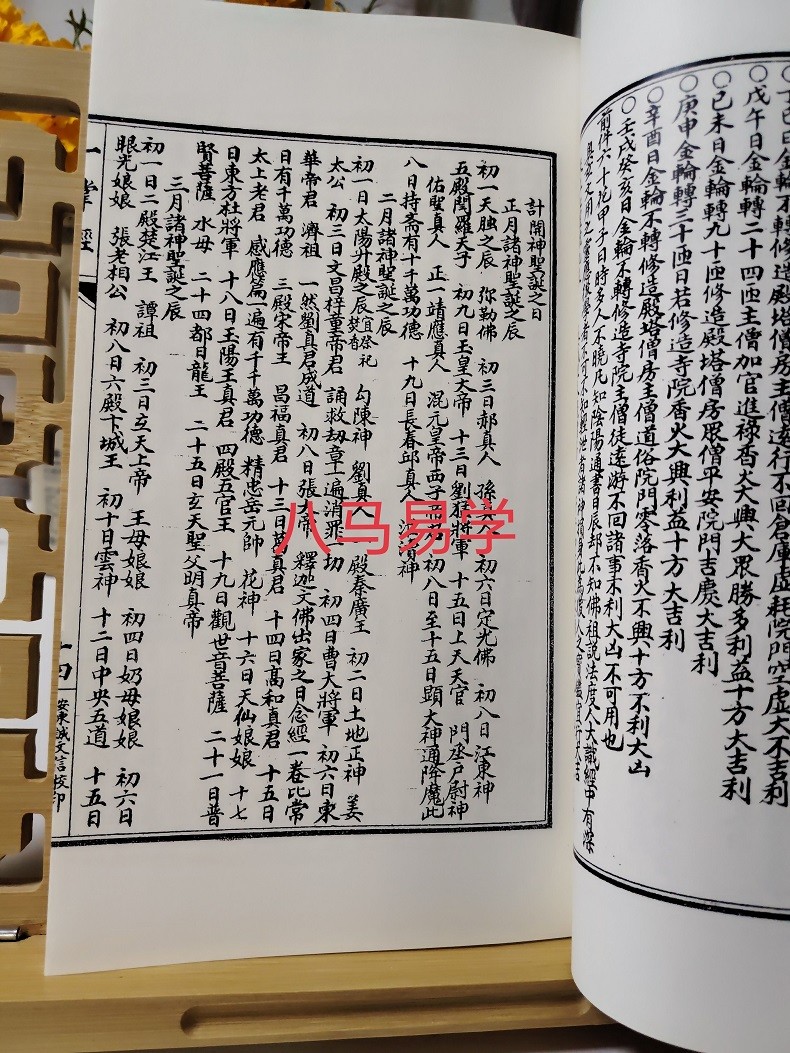 丁巳日金輪不轉修造殿塔僧房主僧遠行不回倉庫虛耗院門空虛大不吉利
○戊午日金輪轉二十四匝主僧加官進祿香火大興大眾勝多利益十方大吉利
○己未日金輪轉九十匝修造殿塔僧房眾僧平安院門吉慶大吉利
○庚申金輪轉三十匝日若修造寺院香火大興利益十方大吉利
○辛酉日金輪不轉修造殿塔僧房主僧道俗院門零落香火不興十方不利大凶
○壬戌癸亥日金輪不轉修造寺院主僧徒遠游不回諸事不利大凶不可用也
前件六十花甲子日時多人不曉凡知陰陽通書日辰却不知佛祖說法度人大識經中有深
計開神聖誕之日
正月諸神聖誕之辰
初一天臘之辰 弥勒佛 初三日郝真人 孫真人 初六日定光佛 初八日江東神
五殿閻羅天子 初九日玉皇大帝 十三日劉猛將軍 十五日上天天官 門丞戶尉神
佑聖真人 正一靖應真人 混元皇帝西子帝君 初八日至十五日顯大神通降魔此
八日持齋有十千萬功德 十九日長春邱真人 神
二月諸神聖誕之辰
初一日太陽升殿之辰宜祭祀焚香 勾陳神 劉真人 殿秦廣王 初二日土地正神 姜
太公 初三日文昌梓童帝君 誦救劫章一遍消罪一切 初四日曹大將軍 初六日東
華帝君 濟祖 一然劉真君成道 初八日張大帝 釋迦文佛出家之日念經一卷比常
日有千萬功德 三殿宋帝王 昌福真君 十三日萬真君 十四日髙和真君 十五日
太上老君 感應篇一遍有千千萬功德 精忠岳元帥 花神 十六日天仙娘娘 十七
日東方杜將軍 十八日玉陽王真君 四殿五官王 十九日觀世音菩薩 二十一日普
賢菩薩 水母 二十四都日龍王 二十五日玄天聖父明真帝
三月諸神聖誕之辰
初一日二殿楚江王 譚祖 初三日玄天上帝 王母娘娘 初四日奶母娘娘 初六日
眼光娘娘 張老相公 初八日六殿卞城王 初十日雲神 十二日中央五道 十五日
一掌經
十四
安東誠文信校印
八马易学